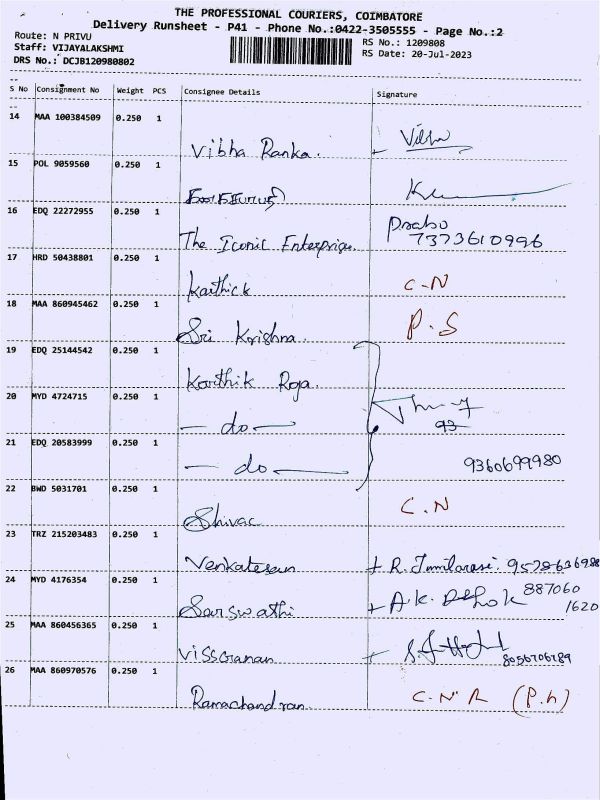 THE PROFESSIONAL COURIERS, COIMBATORE
Delivery Runsheet - P41 - Phone No.:0422-3505555 - Page No.:2
Route: N PRIVU
RS No.: 1209808
Staff: VIJAYALAKSHMI
RS Date: 20-Jul-2023
DRS No.: DCJB120980802
S No Consignment No Weight PCS Consignee Details Signature
14 MAA 100384509 0.250 1
Vibha Ranka.
15 POL 9059560 0.250 1
16 EDQ 22272955 0.250 1
The Iconic Enterprise. Prabo
7373610996
17 HRD 50438801 0.250 1
Karthick C-N
18 MAA 860945462 0.250 1
Sri Krishna. P.S
19 EDQ 25144542 0.250 1
Karthik Roja.
20 MYD 4724715 0.250 1
— do — 93
21 EDQ 20583999 0.250 1
— do — 9360699980
22 BWD 5031701 0.250 1
Shivac C.N
23 TRZ 215203483 0.250 1
Venkatesan
24 MYD 4176354 0.250 1
Sarswathi A.K. 887060
1620
25 MAA 860456365 0.250 1
8056706789
26 MAA 860970576 0.250 1
Ramachandran. C-N'R (P.h)